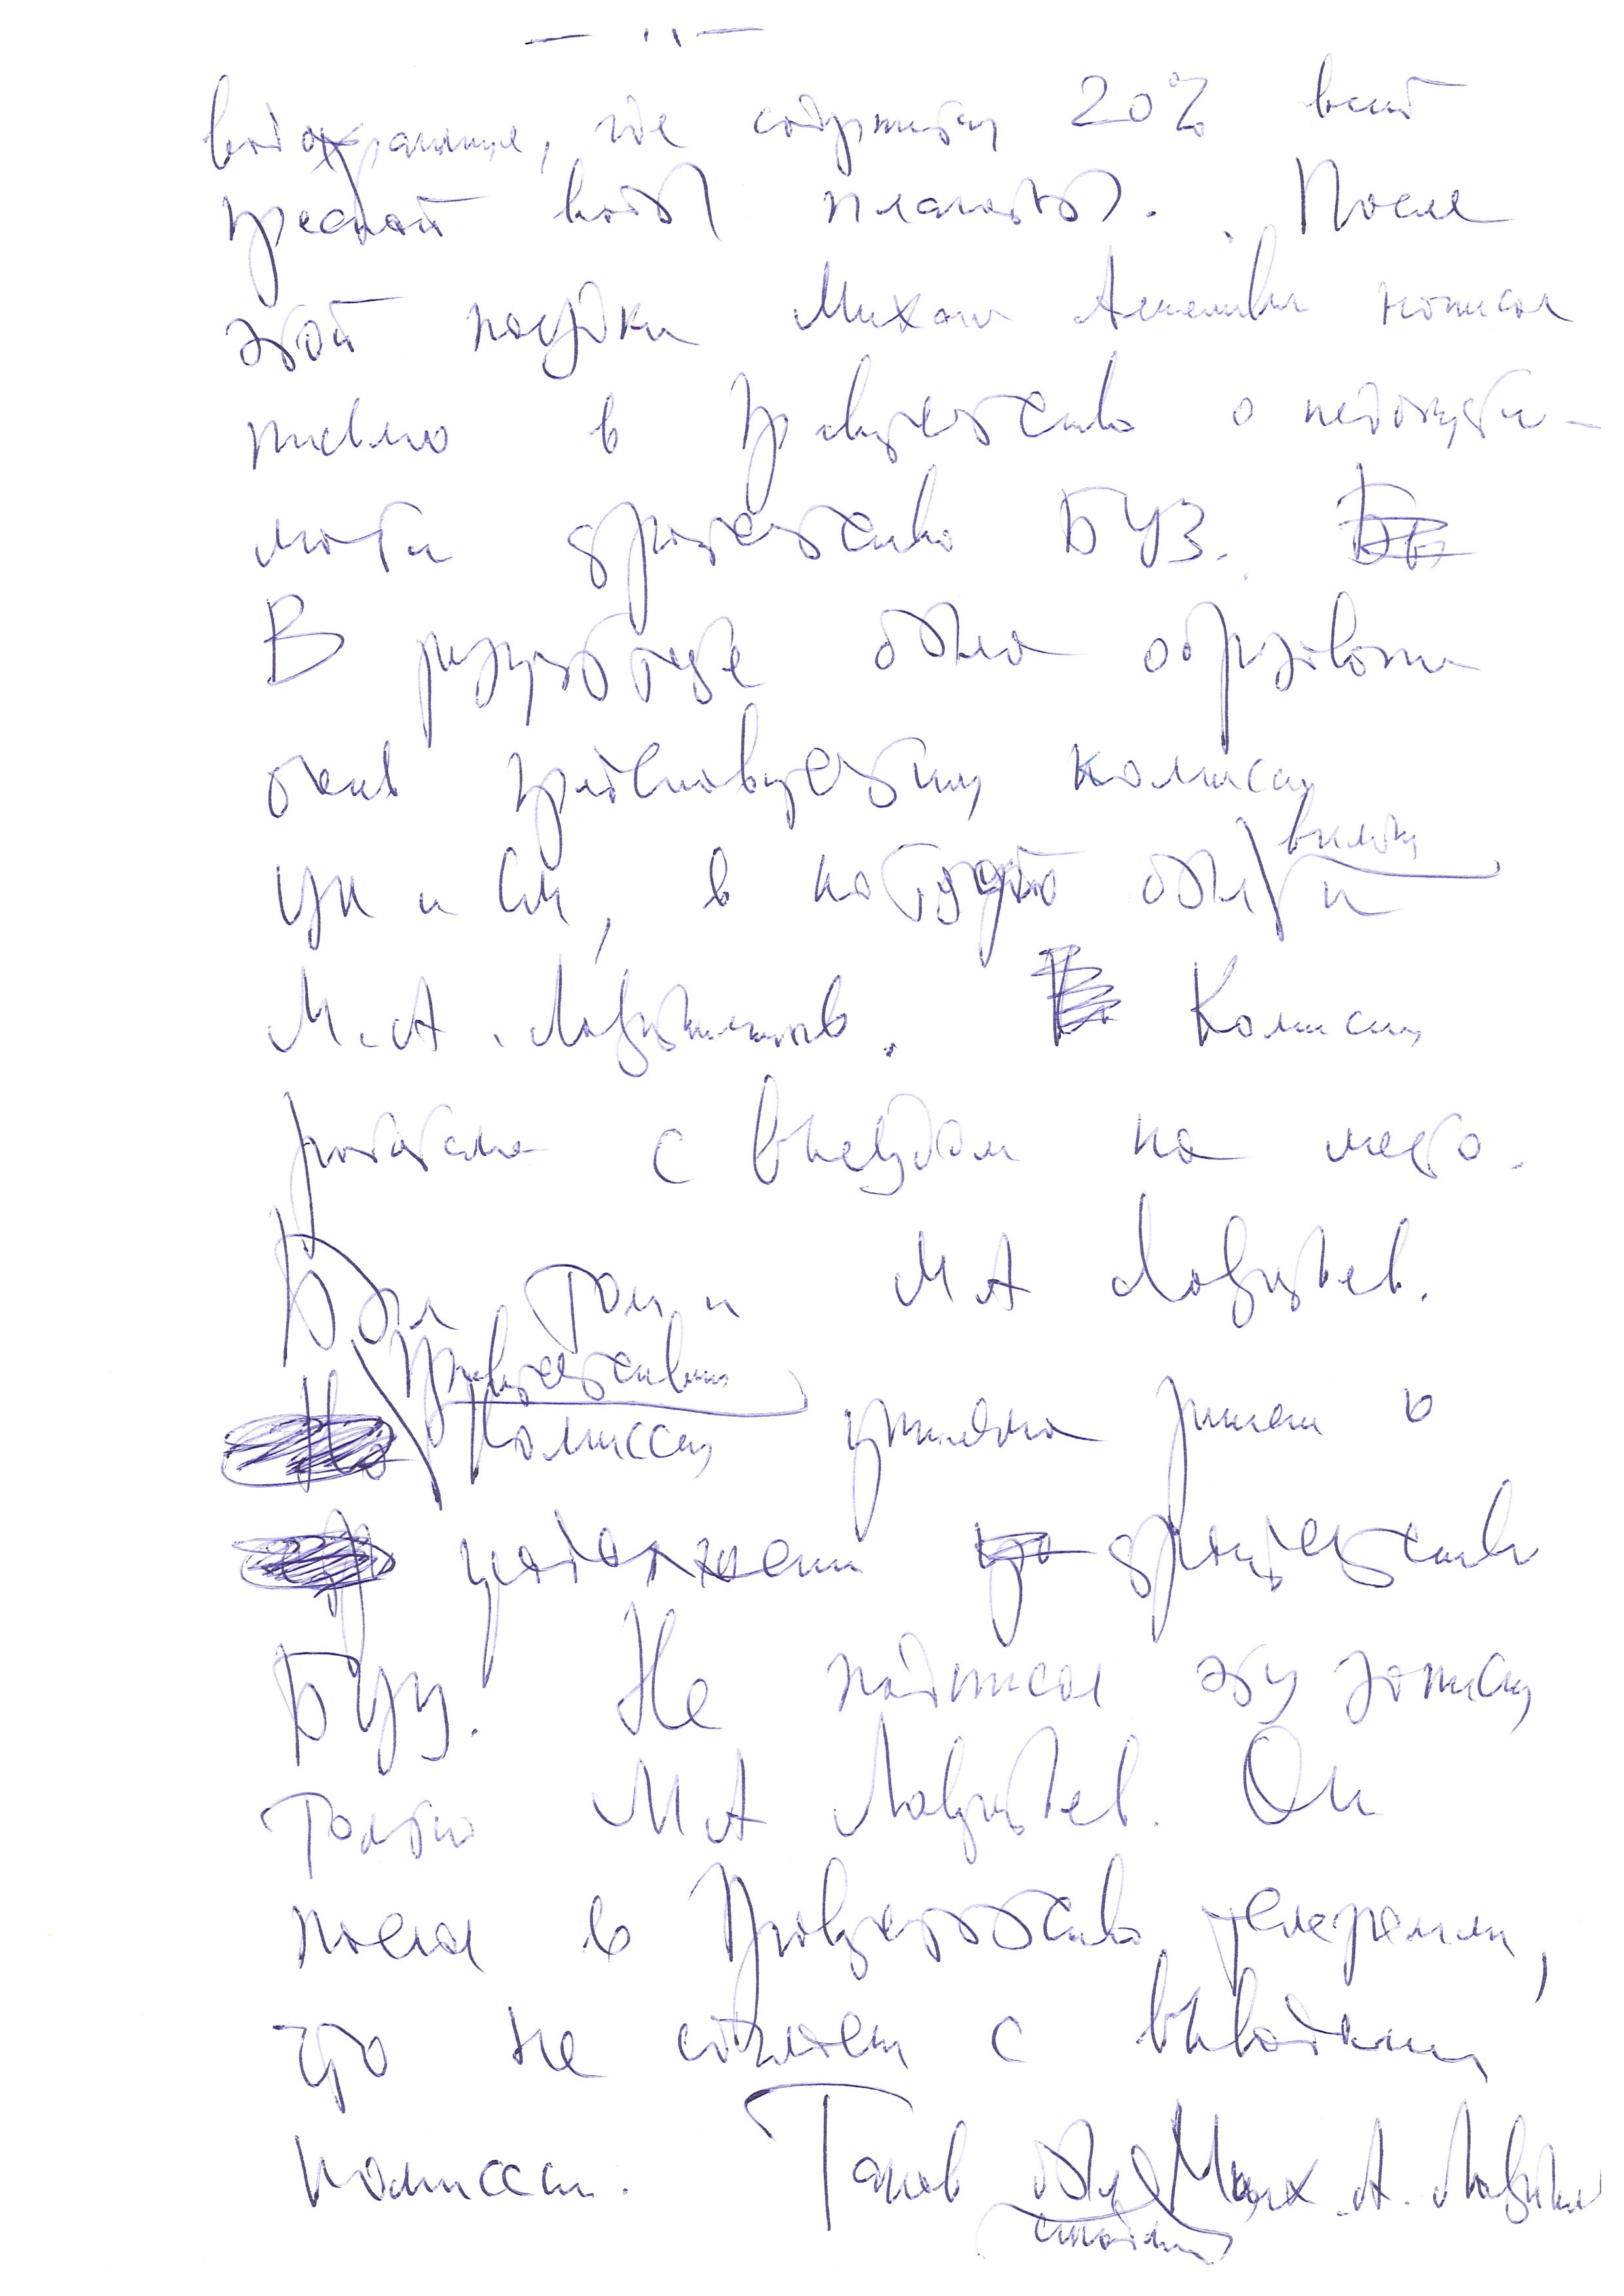 — " —
водохранилище, где содержится 20% всей
пресной воды планеты. После
этой поездки Михаил Алексеевич написал
письмо в правительство о недопусти-
мости строительства БЦЗ.
В результате была образована
очень представительная комиссия
ЦК и СМ, в которую был включен и
М.А. Лаврентьев. Комиссия
работала с выездом на место.
Был там и М А Лаврентьев.
Правительственная
Комиссия приняла решение о
продолжении строительства
БЦЗ. Не подписал эту записку
только М А Лаврентьев. Он
послал в Правительство телеграмму,
что не согласен с выводами
комиссии. Таков был Мих. А. Лаврентьев